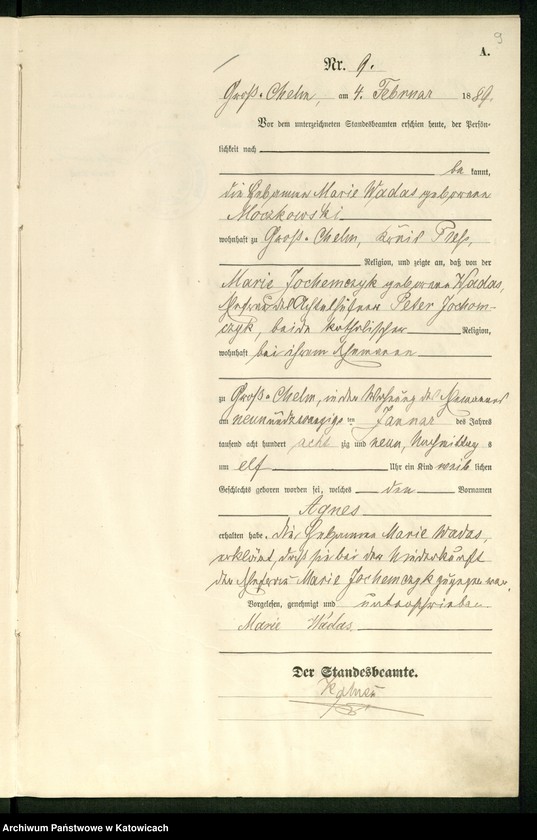 9
A.
Nr. 9.
Groß-Chelm, am 4. Februar 1889.
Vor dem unterzeichneten Standesbeamten erschien heute, der Persön-
lichkeit nach
be kannt,
die Hebamme Marie Wadas geborene
Moczkowski
wohnhaft zu Groß-Chelm, Kreis Pleß,
Religion, und zeigte an, daß von der
Marie Jochemczyk geborene Wadas,
Ehefrau des Achtelhüfner Peter Jochem-
czyk, beide katholischer Religion,
wohnhaft bei ihrem Ehemanne
zu Groß-Chelm, in der Wohnung des Ehemannes
am neunundzwanzigsten Januar des Jahres
tausend acht hundert acht zig und neun, Nachmittag s
um elf Uhr ein Kind weib lichen
Geschlechts geboren worden sei, welches den Vornamen
Agnes
erhalten habe. Die Hebamme Marie Wadas,
erklärt, daß sie bei der Niederkunft
der Ehefrau Marie Jochemczyk zugegen war.
Vorgelesen, genehmigt und unterschrieben
Marie Wadas.
Der Standesbeamte.
Archiwum Państwowe w Katowicach